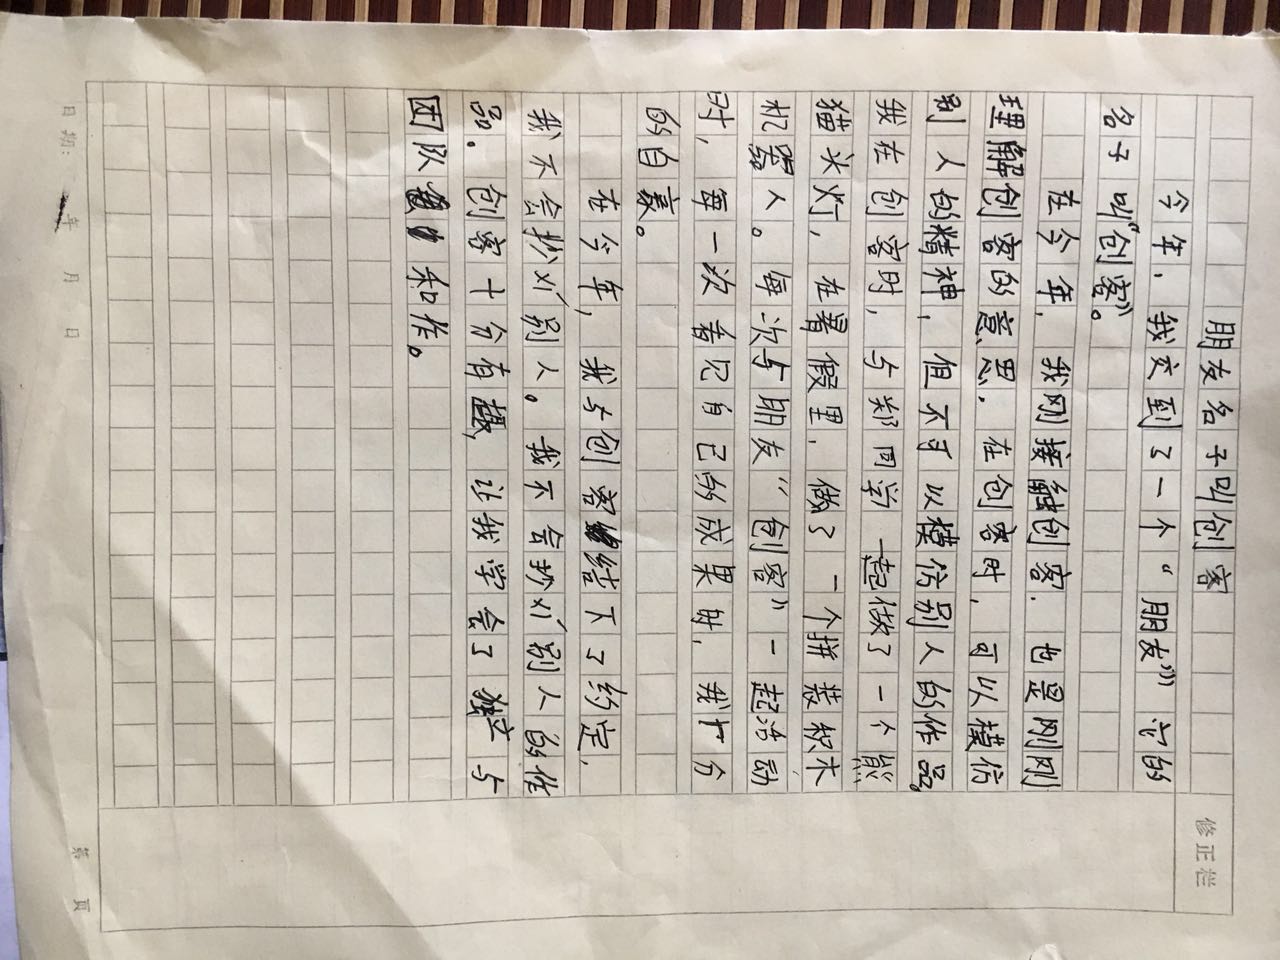 朋友名子叫创客
修正栏
今年，我交到了一个“朋友”它的
名子叫“创客”。
在今年，我刚接触创客．也是刚刚
理解创客的意思．在创客时，可以模仿
别人的精神，但不可以模仿别人的作品。
我在创客时，与郑同学一起做了一个熊
猫头灯，在暑假里，做了一个拼装积木
机器人。每次与朋友“创客”一起活动
时，每一次看见自己的成果时，我十分
的自豪。
在今年，我与创客结下了约定，
我不会抄义别人。我不会抄义别人的作
品。创客十分有趣，让我学会了独立与
团队和作。
日期： 年 月 日
第 页